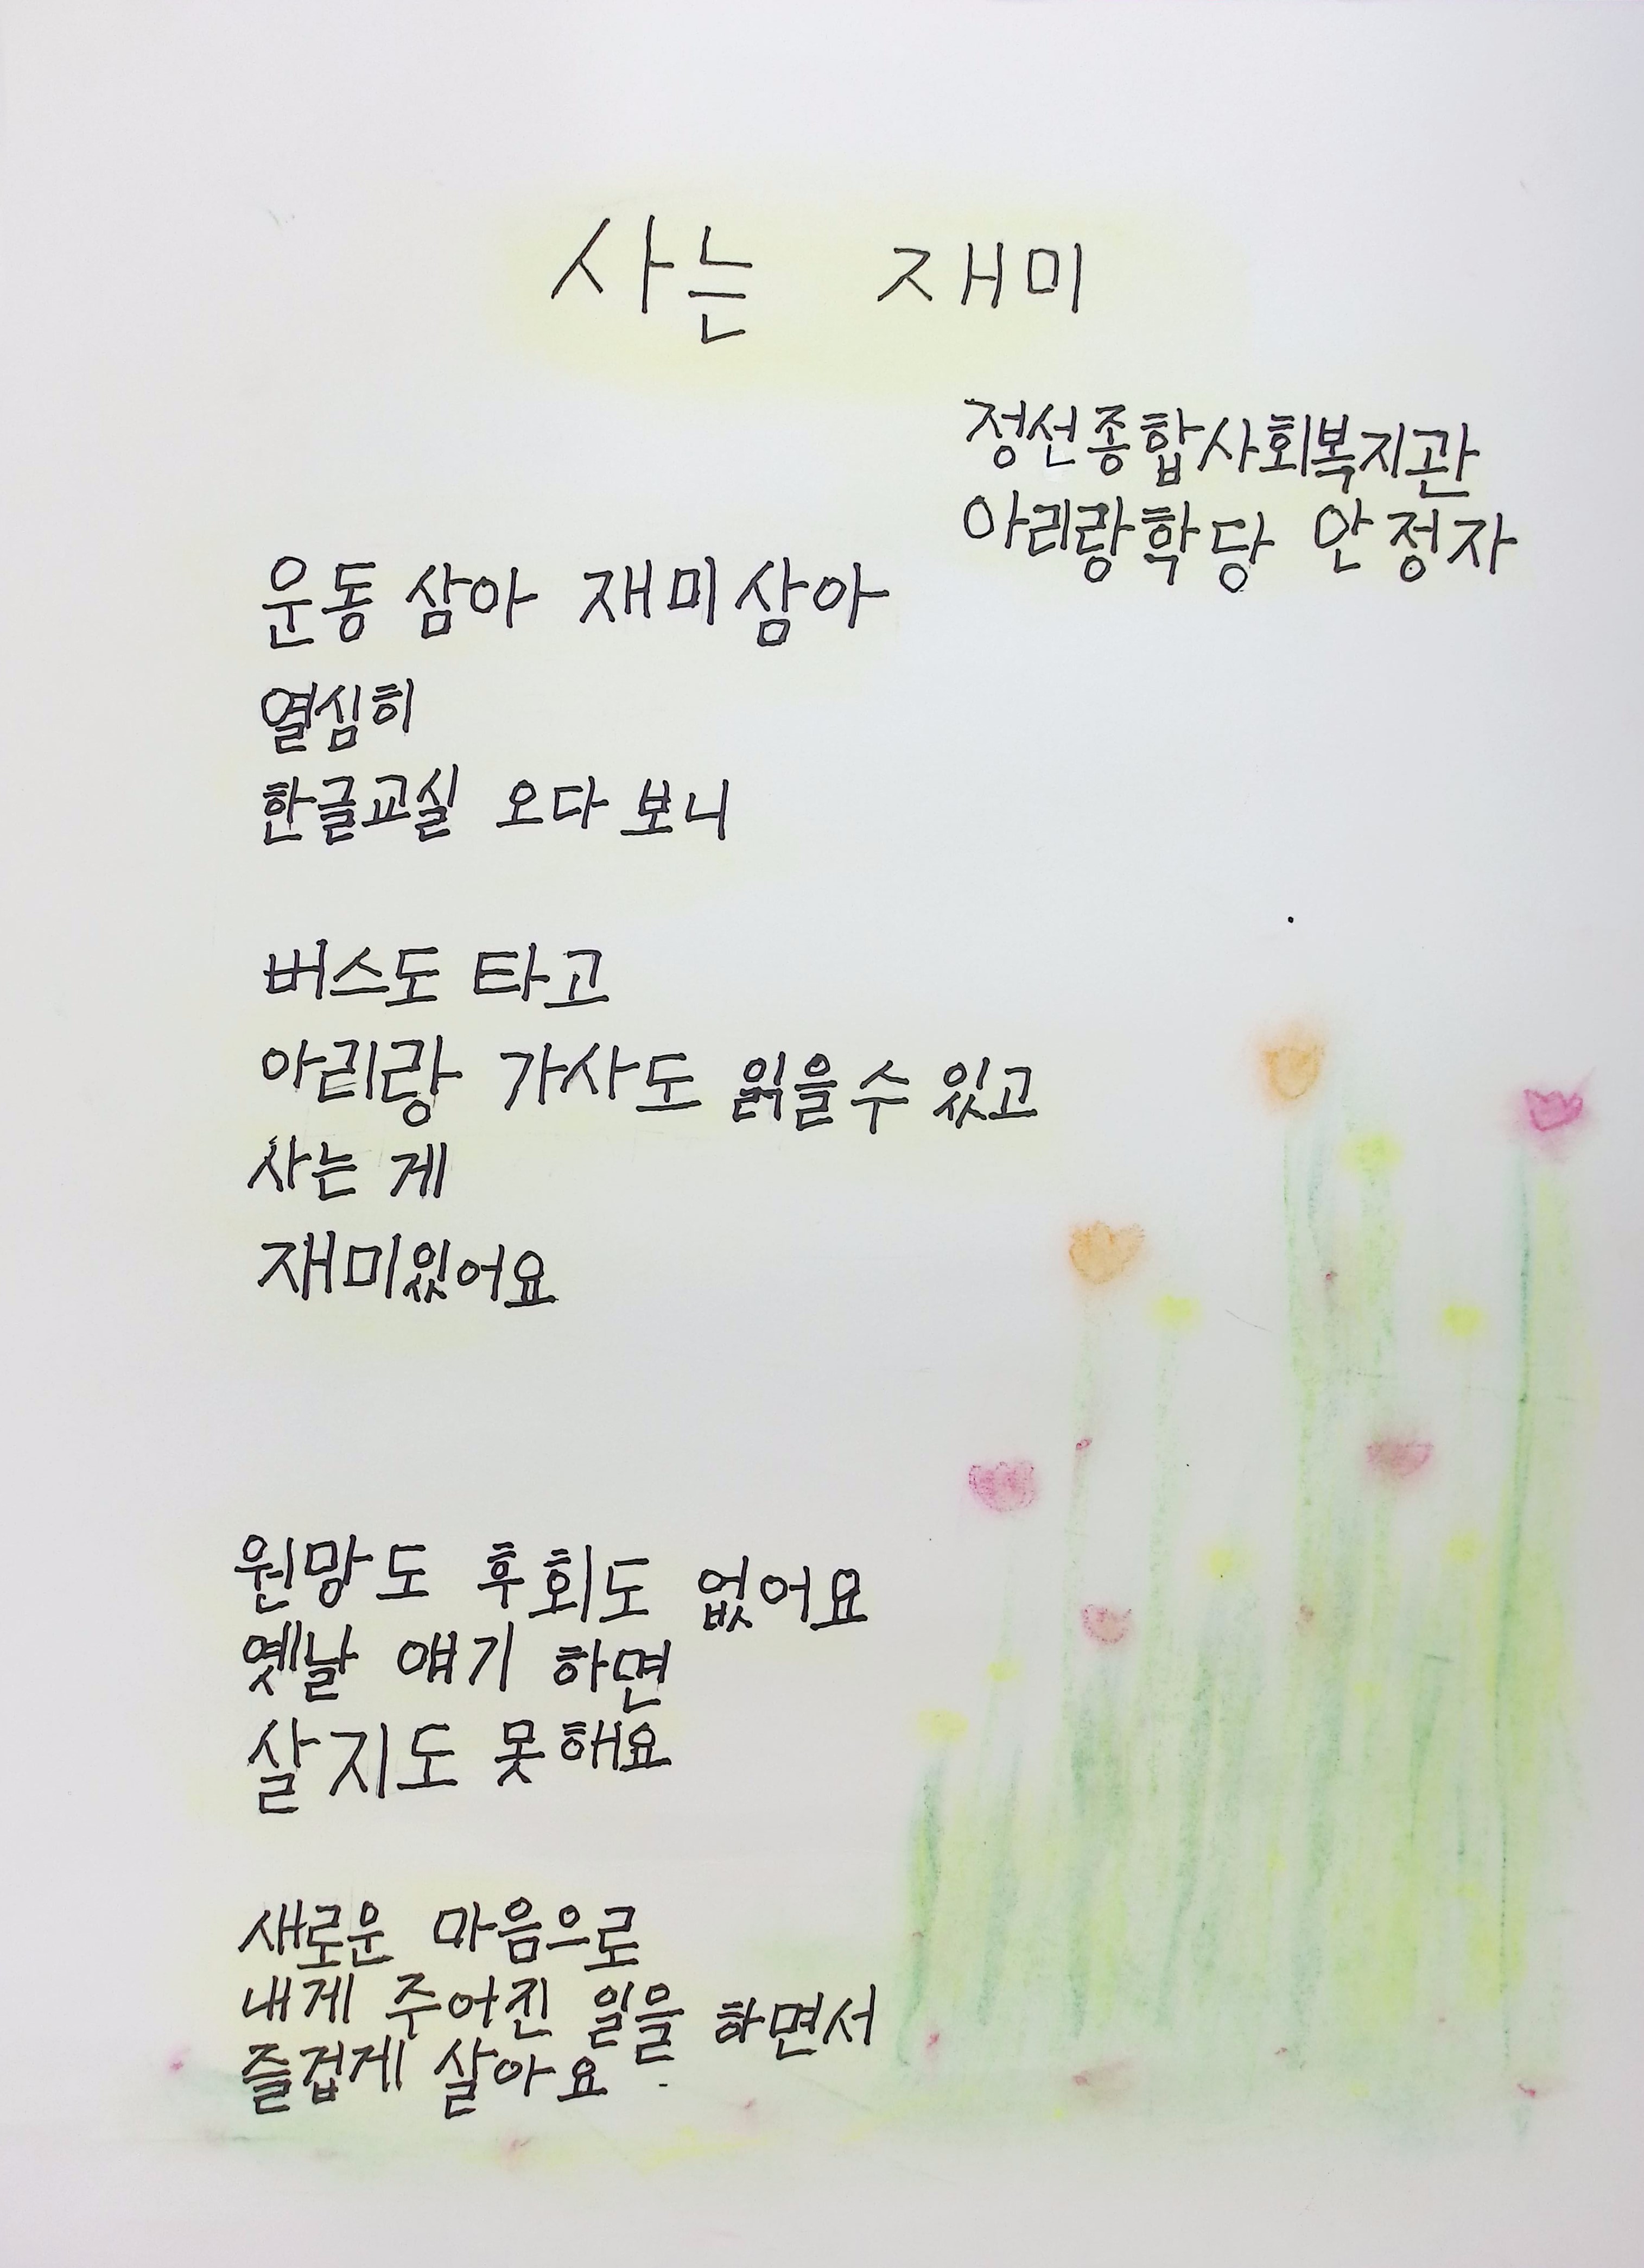 사는 재미
정선종합사회복지관
아리랑학당 안정자
운동 삼아 재미삼아
열심히
한글교실 오다 보니
버스도 타고
아리랑 가사도 읽을수 있고
사는 게
재미있어요
원망도 후회도 없어요
옛날 얘기 하면
살지도 못해요
새로운 마음으로
내게 주어진 일을 하면서
즐겁게 살아요.